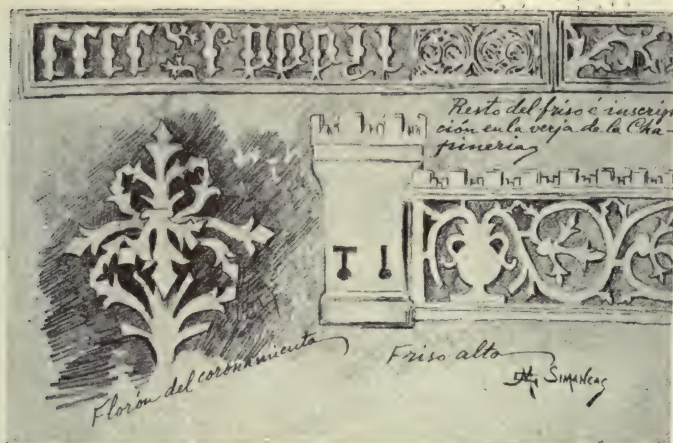 Resto del friso é inscrip
ción en la verja de la Cha-
pineria
Florón del coronamiento
Friso alto
SIMANCAS